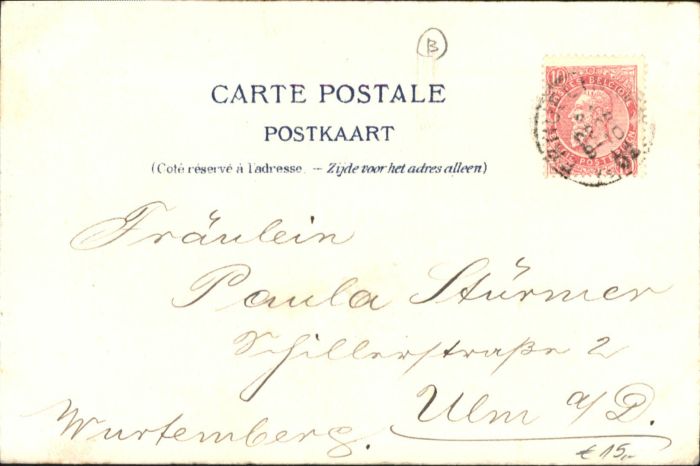 B
CARTE POSTALE
POSTKAART
(Coté réservé à l'adresse. – Zijde voor het adres alleen)
10
BELGIQUE
Fräulein
Paula Stürmer
Schillerstraße 2
Ulm a/D.
Wurtemberg.
€ 15,-